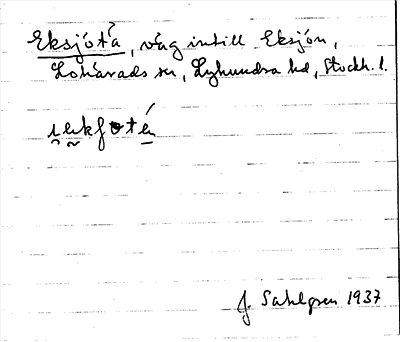 Eksjötå, väg intill Eksjön,
Lohärads sn, Lyhundra hd, Stockh. l.
J. Sahlgren 1937